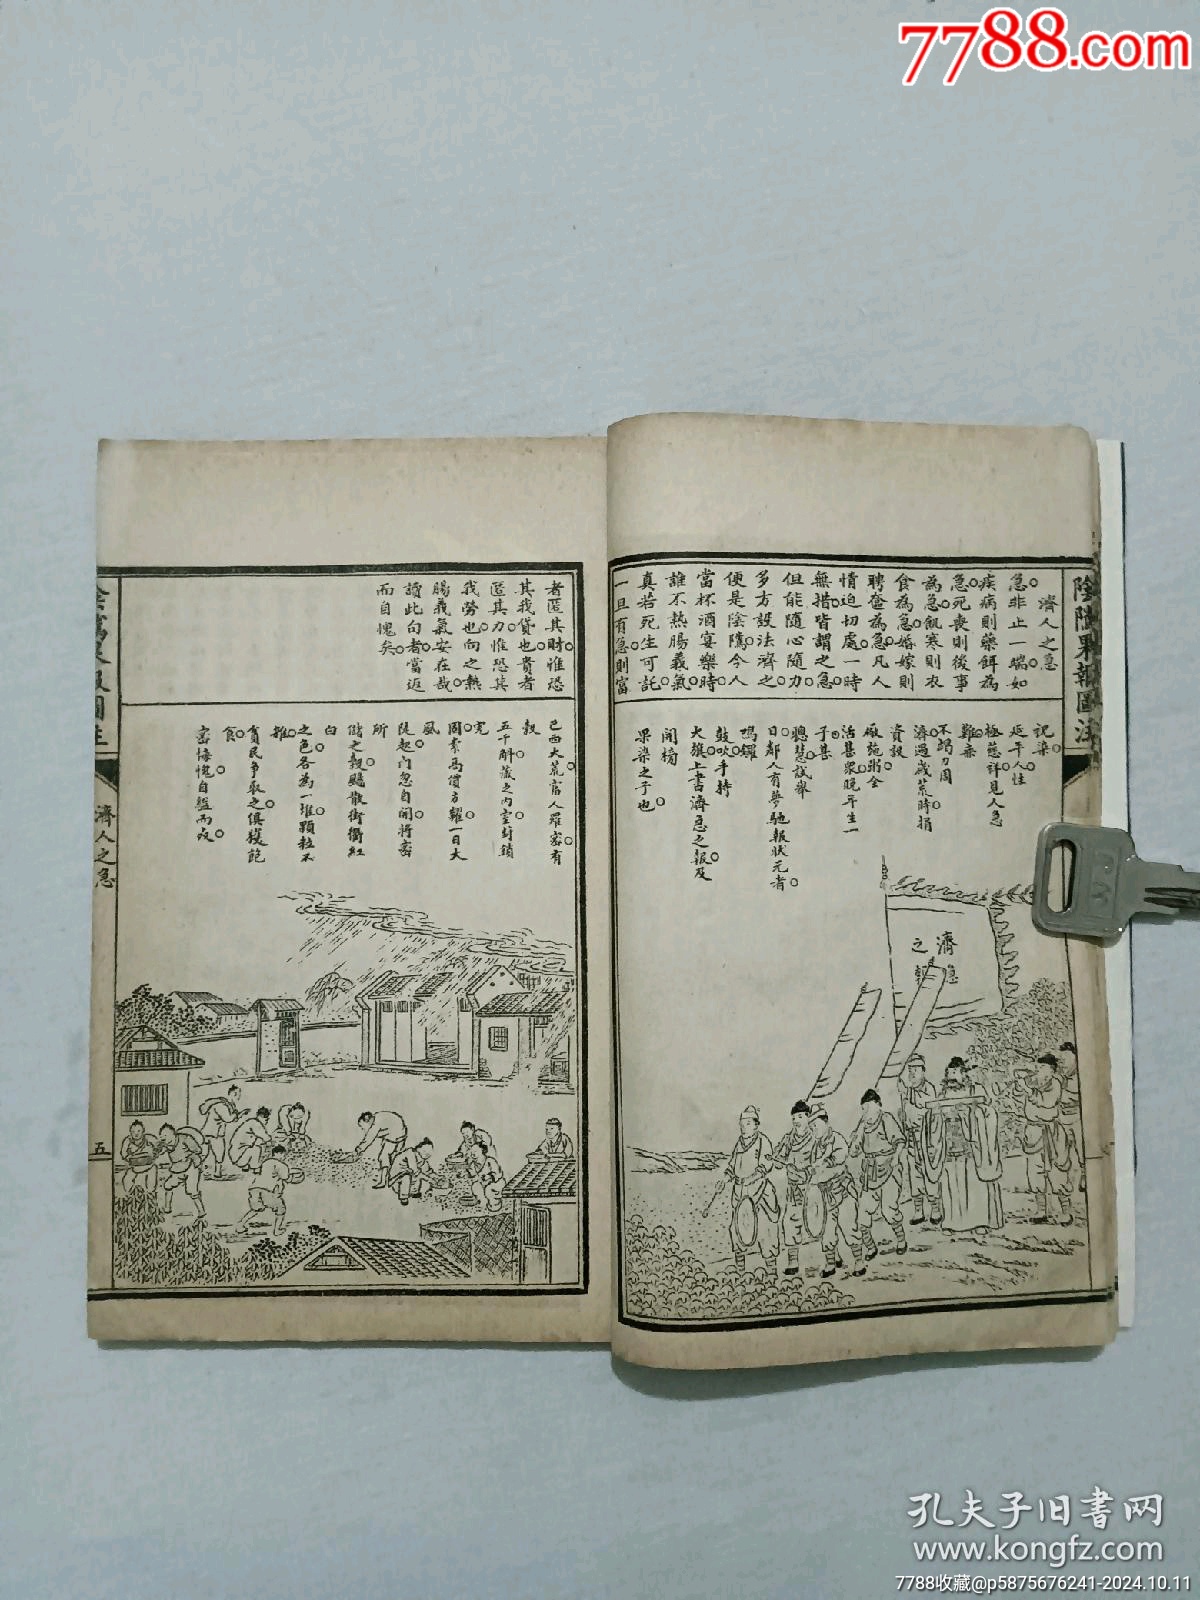 7788.com
陰隲果報圖注
濟人之急
急非止一端如
疾病則藥餌為
急死喪則後事
為急飢寒則衣
食為急婚嫁則
聘奩為急凡人
情迫切處一時
無措皆謂之急
但能隨心隨力
多方設法濟之
便是陰隲今人
當杯酒宴樂時
誰不熱腸義氣
真若死生可託
一旦有急則富
祝染
延平人性
極慈祥見人急
難亦
不竭力周
濟遇歲荒時捐
資設
廠施粥全
活甚衆晚年生一
子甚
聰慧試舉
日鄰人有夢馳報狀元者
鳴鑼
鼓吹手持
大旗上書濟急之報及
開榜
果染之子也
濟急
之報
者匿其財惟恐
其我貸也貴者
匿其力惟恐其
我勞也向之熱
腸義氣安在哉
讀此句者當返
而自愧矣
己酉大荒富人羅密有
穀
五千斛藏之內室封鎖
完
固索高價方糶一日大
風
陡起門忽自開將密
所
儲之穀颺散街衢紅
白
之色各為一堆顆粒不
雜
貧民爭取之俱獲飽
食
密悔愧自縊而歿
濟人之急
五
孔夫子旧书网
www.kongfz.com
7788收藏@p5875676241-2024.10.11